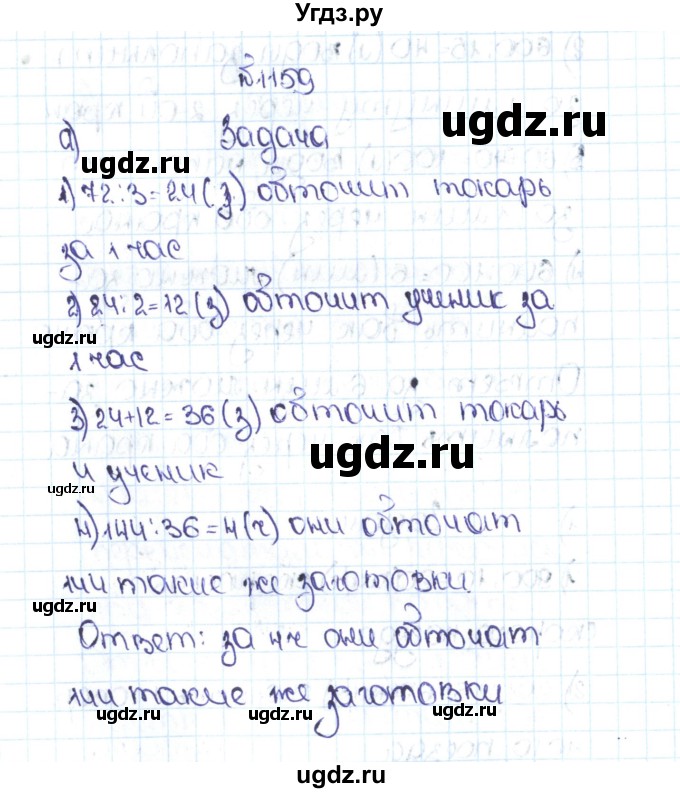 Угдз.ру
№1159
ugdz.ru
а) Задача
ugdz.ru
1) 72:3=24(з.) обточит токарь
за 1 час
2) 24:2=12(з) обточит ученик за
ugdz.ru
1 час
3) 24+12=36(з) обточит токарь
ugdz.ru
и ученик
ugdz.ru
4) 144:36=4(ч) они обточат
144 такие же заготовки.
ugdz.ru
ugdz.ru
Ответ: за 4ч они обточат
144 такие же заготовки
ugdz.ru
ugdz.ru
ugdz.ru
ugdz.ru